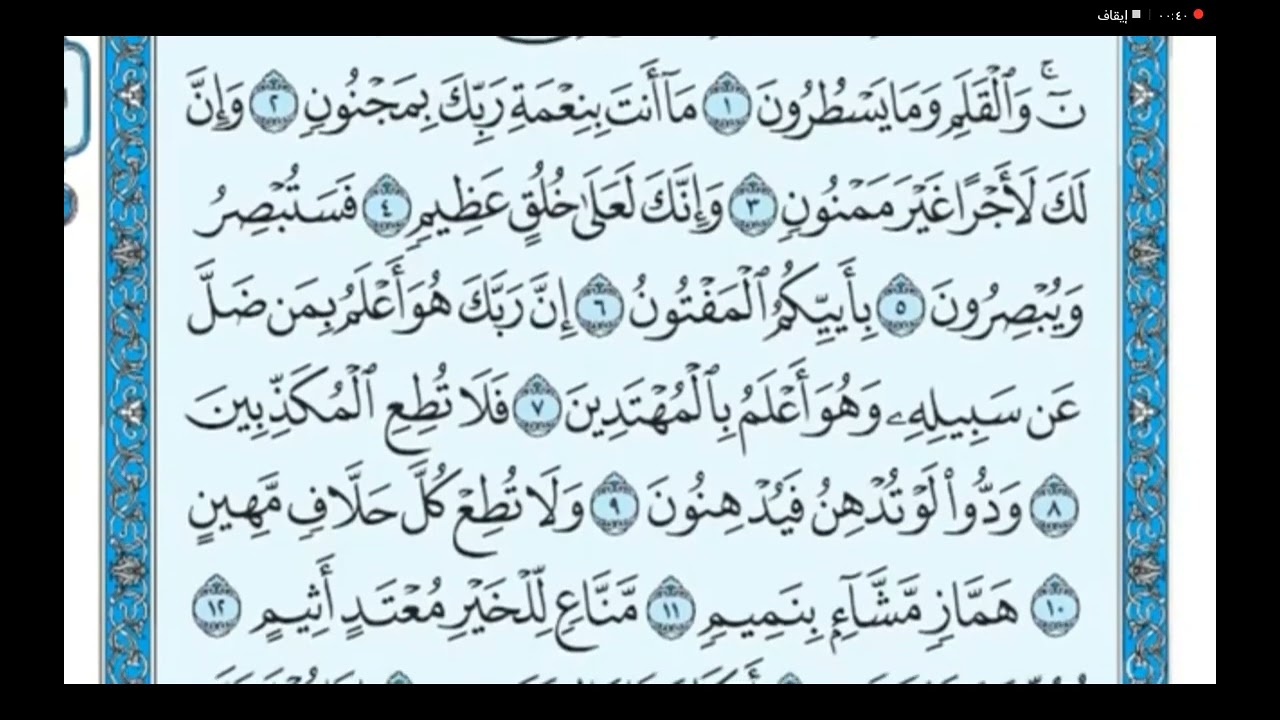 ٠٠:٤٠ إيقاف
نٓۚ وَٱلْقَلَمِ وَمَا يَسْطُرُونَ ١ مَآ أَنتَ بِنِعْمَةِ رَبِّكَ بِمَجْنُونٍ ٢ وَإِنَّ
لَكَ لَأَجْرًا غَيْرَ مَمْنُونٍ ٣ وَإِنَّكَ لَعَلَىٰ خُلُقٍ عَظِيمٍ ٤ فَسَتُبْصِرُ
وَيُبْصِرُونَ ٥ بِأَييِّكُمُ ٱلْمَفْتُونُ ٦ إِنَّ رَبَّكَ هُوَ أَعْلَمُ بِمَن ضَلَّ
عَن سَبِيلِهِۦ وَهُوَ أَعْلَمُ بِٱلْمُهْتَدِينَ ٧ فَلَا تُطِعِ ٱلْمُكَذِّبِينَ
٨ وَدُّوا۟ لَوْ تُدْهِنُ فَيُدْهِنُونَ ٩ وَلَا تُطِعْ كُلَّ حَلَّافٍ مَّهِينٍ
١٠ هَمَّازٍ مَّشَّآءٍۭ بِنَمِيمٍ ١١ مَّنَّاعٍ لِّلْخَيْرِ مُعْتَدٍ أَثِيمٍ ١٢